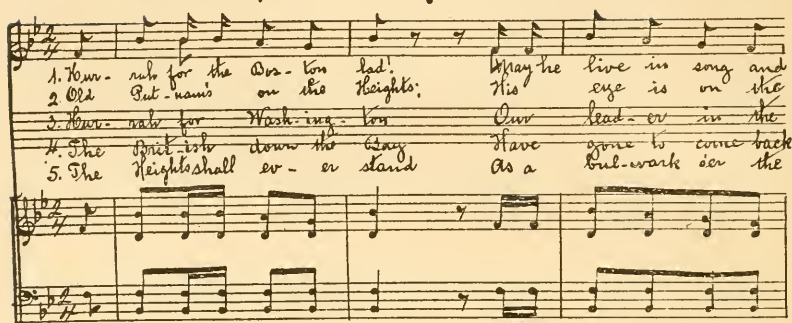 2 4
1. Hur- rah for the Bos- ton lad! May he live in song and
2. Old Put- nam's on the Heights; His eye is on the
3. Hur- rah for Wash- ing- ton Our lead- er in the
4. The Brit- ish down the Bay Have gone to come back
5. The Heights shall ev- er stand As a bul- wark o'er the
2 4
2 4